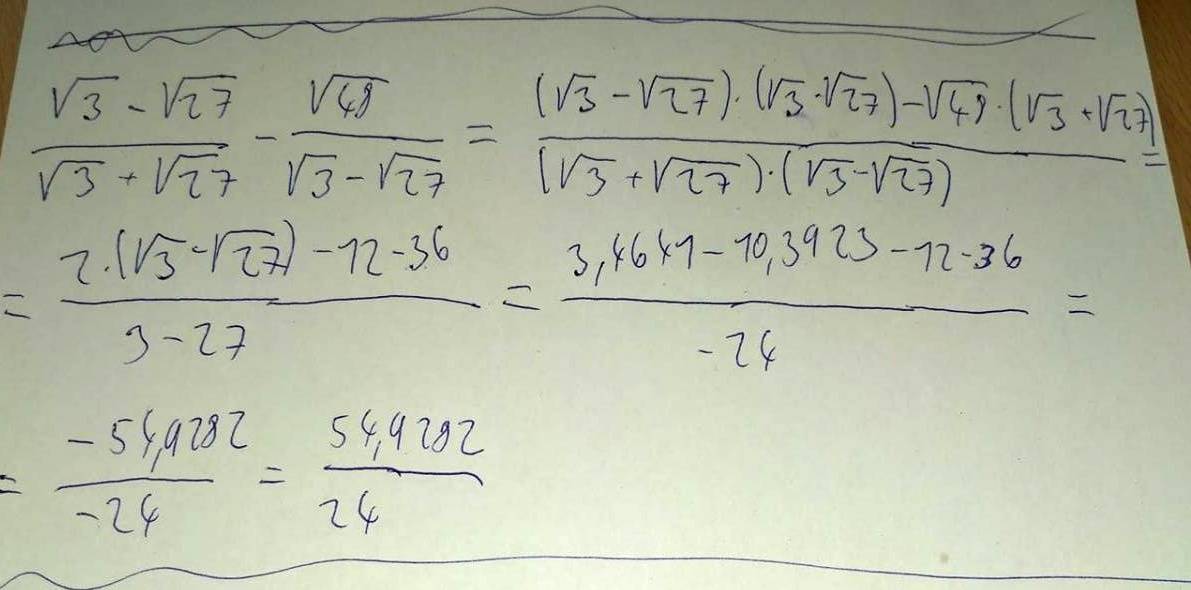 √3 - √27 / √3 + √27 - √48 / √3 - √27 = (√3 - √27)·(√3-√27) - √48·(√3 + √27) / (√3 + √27)·(√3-√27) =
= 2·(√3-√27) - 12 - 36 / 3 - 27 = 3,4641 - 10,3923 - 12 - 36 / -24 =
= -54,9282 / -24 = 54,9282 / 24